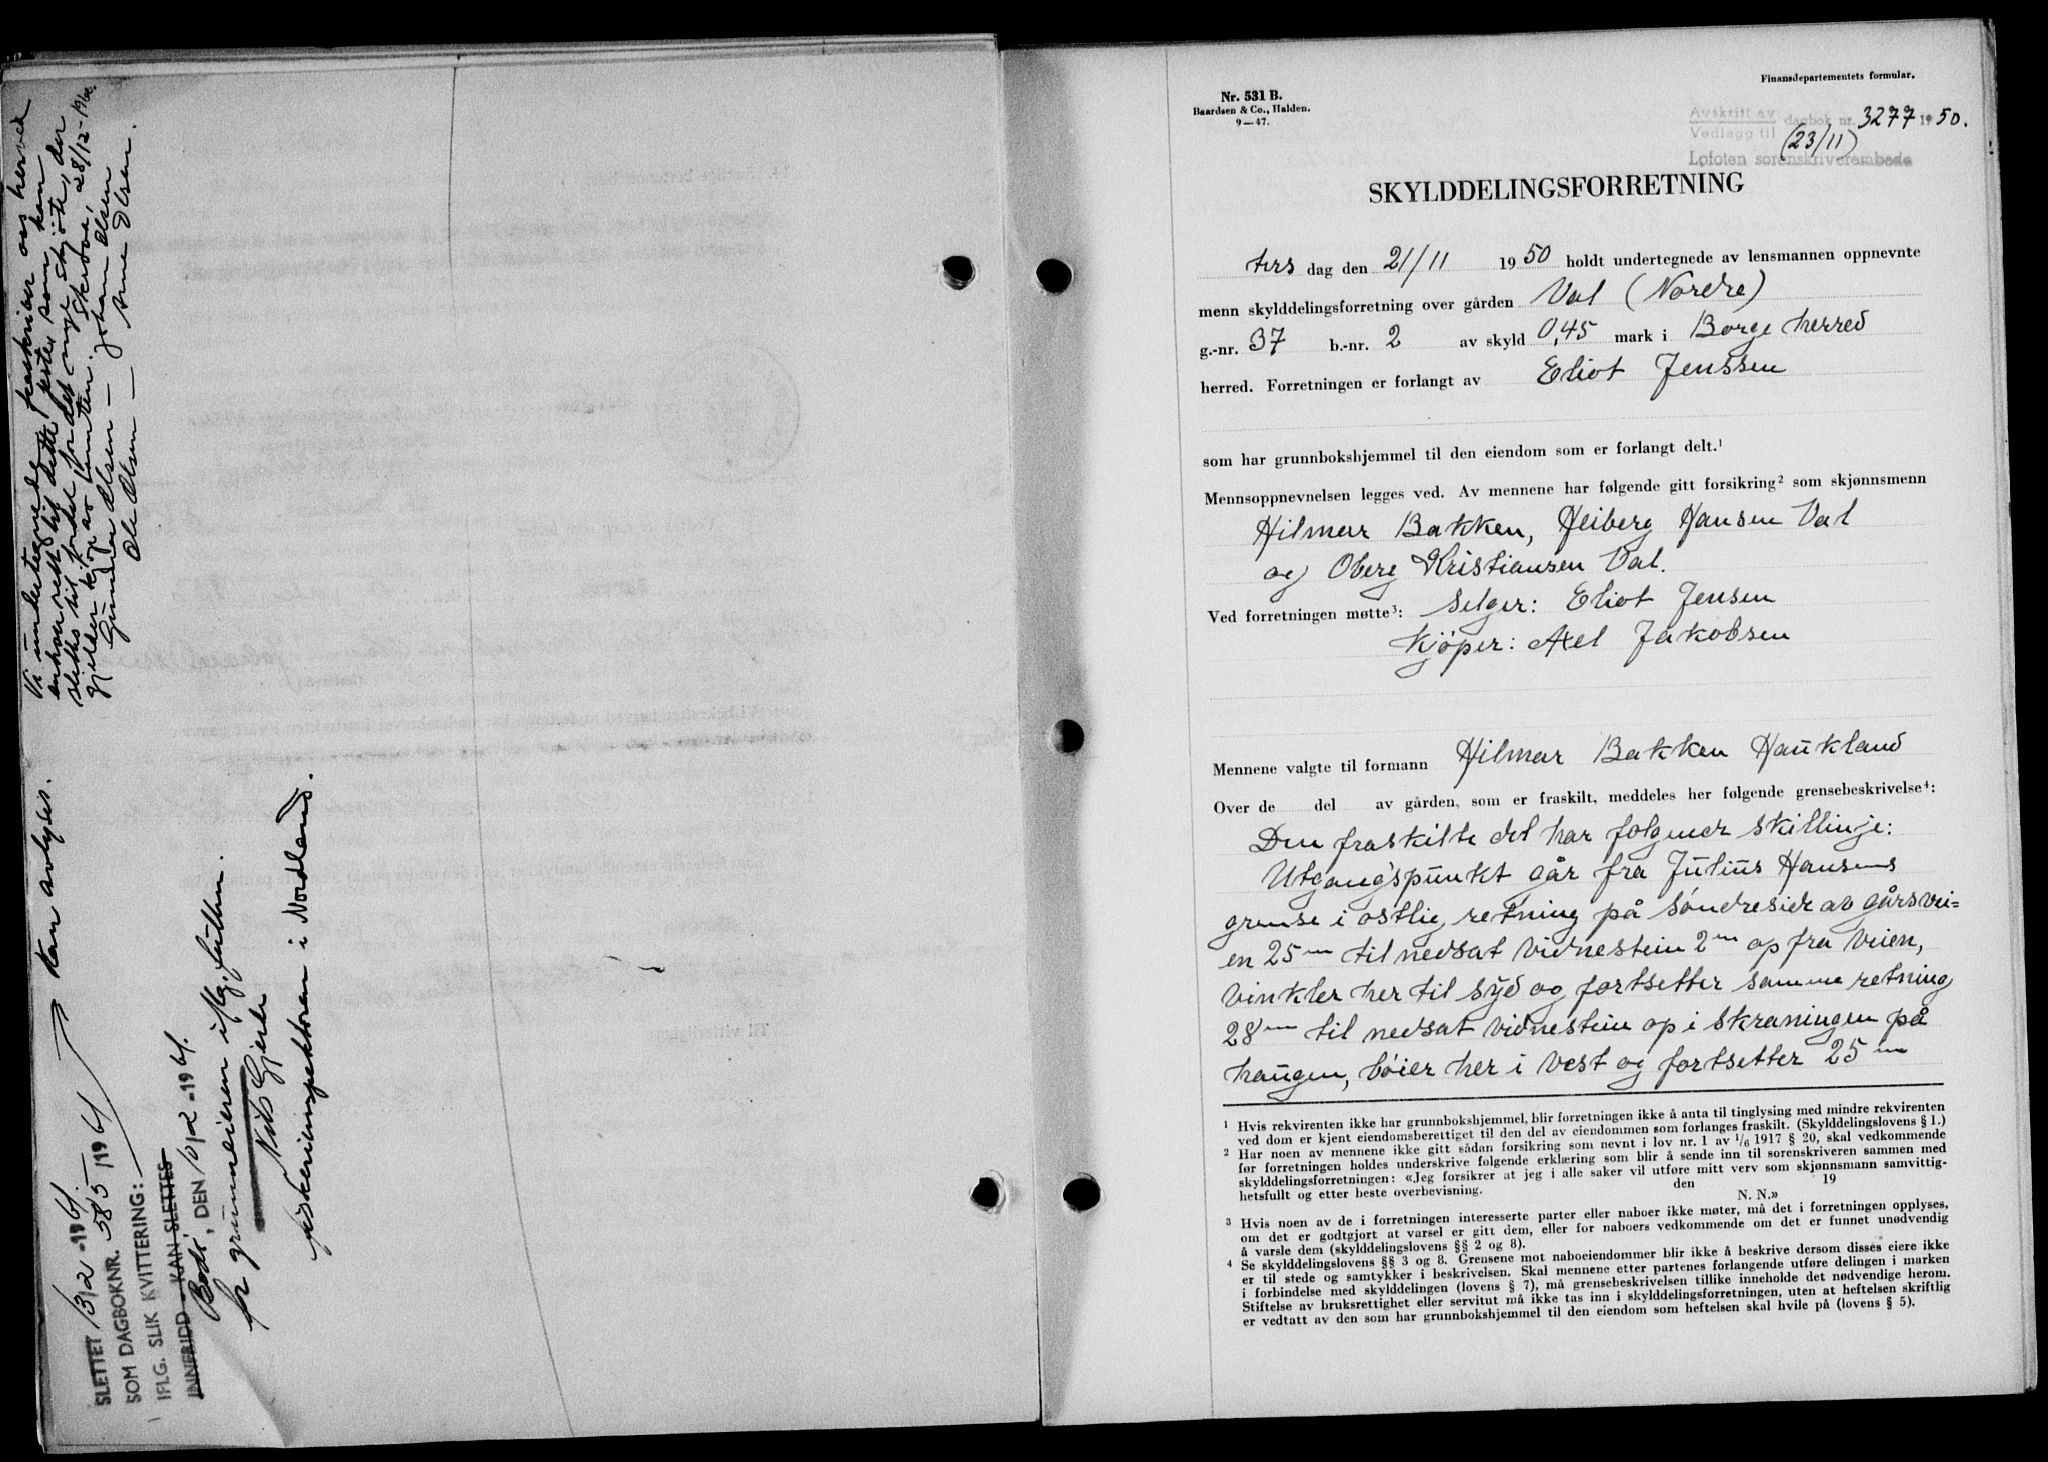 Vi undertegnede fraskriver oss herved
enhver rett til dette feste som kan
slettes til fordel for det nye skjöte, der
gjelder kjöp av tomten. Skrova, 28/12-1960.
Gunnar Olsen — Johan Olsen
Ole Olsen — Arne Olsen.
SLETTET 13/2-1961.
SOM DAGBOKNR. 585/1961
IFLG. SLIK KVITTERING:
INNFRIDD - KAN SLETTES
kan avlyses.
Bodö, DEN 10/2-1961.
for grunneieren iflg. fullm.
Nils Gjerde
fiskeriinspektören i Nordland.
Finansdepartementets formular.
Nr. 531 B.
Baardsen & Co., Halden.
9—47.
Avskrift av
Vedlegg til dagbok nr. 3277 1950.
(23/11)
Lofoten sorenskriverembede
SKYLDDELINGSFORRETNING
tirs dag den 21/11 1950 holdt undertegnede av lensmannen oppnevnte
menn skylddelingsforretning over gården Val (Nordre)
g.-nr. 37 b.-nr. 2 av skyld 0,45 mark i Borge herred
herred. Forretningen er forlangt av Eliot Jenssen
som har grunnbokshjemmel til den eiendom som er forlangt delt.¹
Mennsoppnevnelsen legges ved. Av mennene har følgende gitt forsikring² som skjønnsmenn
Hilmar Bakken, Heiberg Hansen Val
og Oberg Kristiansen Val.
Ved forretningen møtte³: Selger: Eliot Jensen
Kjøper: Axel Jakobsen
Mennene valgte til formann Hilmar Bakken Haukland
Over de del av gården, som er fraskilt, meddeles her følgende grensebeskrivelse⁴:
Den fraskilte del har følgnede skillinje:
Utgangspunkt går fra Julius Hansens
grense i ostlig retning på søndreside av gårsvei=
en 25 m til nedsat vidnestein 2 m op fra veien,
vinkler her til syd og fortsetter samme retning
28 m til nedsat vidnestein op i skraningen på
haugen, bøier her i vest og fortsetter 25 m
¹ Hvis rekvirenten ikke har grunnbokshjemmel, blir forretningen ikke å anta til tinglysing med mindre rekvirenten
ved dom er kjent eiendomsberettiget til den del av eiendommen som forlanges fraskilt. (Skylddelingslovens § 1.)
² Har noen av mennene ikke gitt sådan forsikring som nevnt i lov nr. 1 av 1/6 1917 § 20, skal vedkommende
før forretningen holdes underskrive følgende erklæring som blir å sende inn til sorenskriveren sammen med
skylddelingsforretningen: «Jeg forsikrer at jeg i alle saker vil utføre mitt verv som skjønnsmann samvittig-
hetsfullt og etter beste overbevisning. den 19
N. N.»
³ Hvis noen av de i forretningen interesserte parter eller naboer ikke møter, må det i forretningen opplyses,
om det er godtgjort at varsel er gitt dem, eller for naboers vedkommende om det er funnet unødvendig
å varsle dem (skylddelingslovens §§ 2 og 8).
⁴ Se skylddelingslovens §§ 3 og 8. Grensene mot naboeiendommer blir ikke å beskrive dersom disses eiere ikke
er til stede og samtykker i beskrivelsen. Skal mennene etter partenes forlangende utføre delingen i marken
i forbindelse med skylddelingen (lovens § 7), må grensebeskrivelsen tillike inneholde det nødvendige herom.
Stiftelse av bruksrettighet eller servitut må ikke tas inn i skylddelingsforretningen, uten at heftelsen skriftlig
er vedtatt av den som har grunnbokshjemmel til den eiendom som heftelsen skal hvile på (lovens § 5).